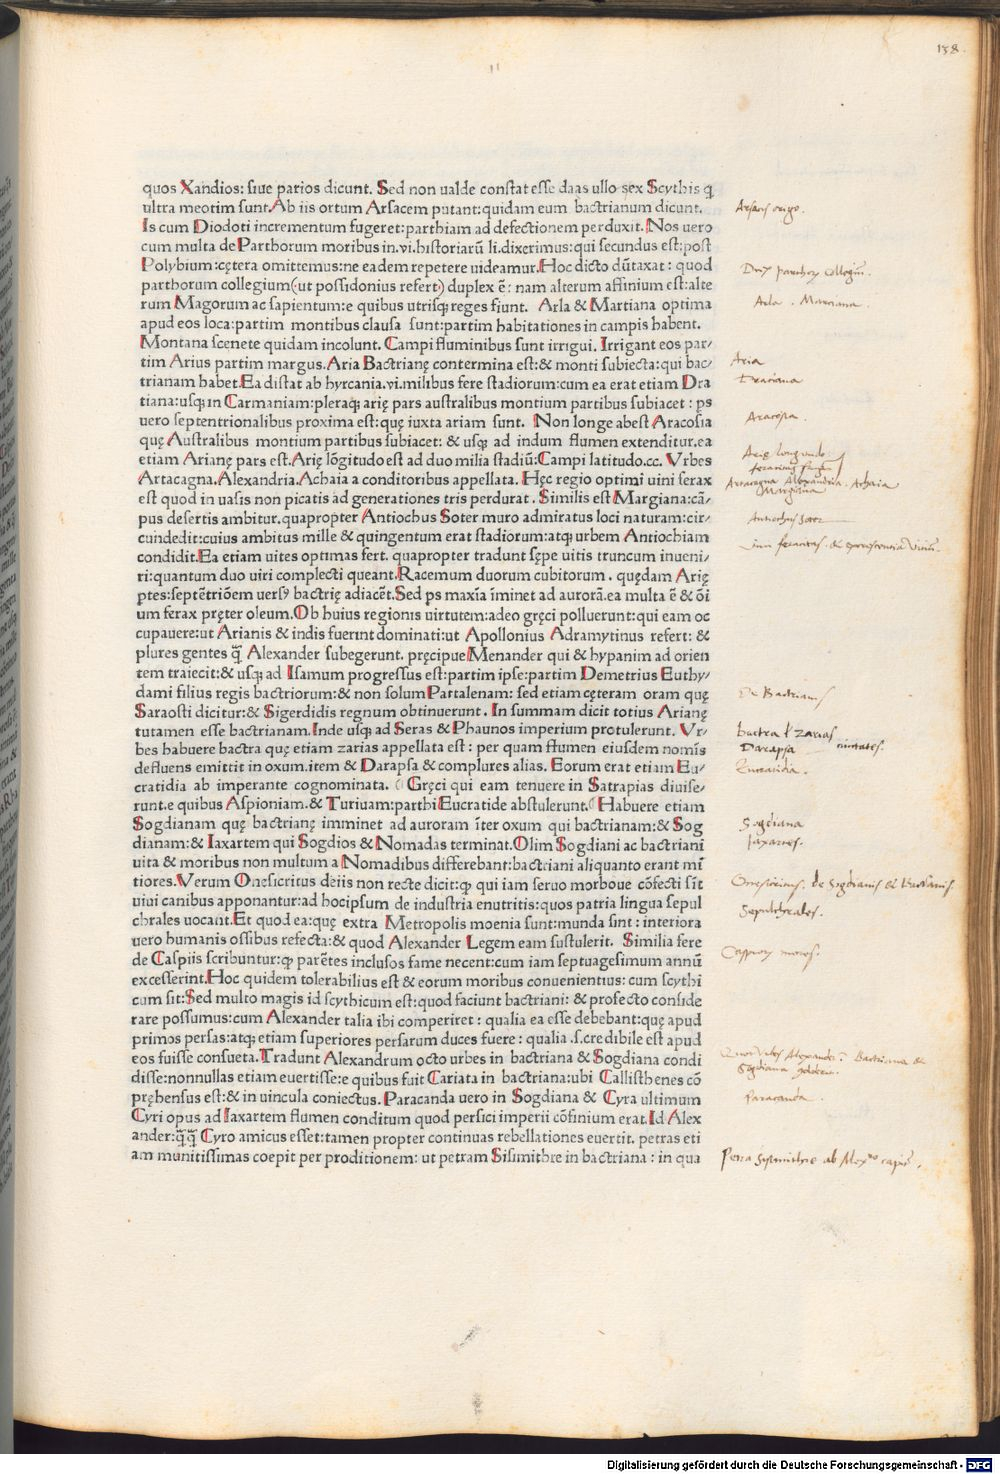 158
quos Xandios: siue parios dicunt. Sed non ualde constat esse daas ullo sex Scythis q̃
ultra meotim sunt. Ab iis ortum Arsacem putant: quidam eum bactrianum dicunt.
Is cum Diodoti incrementum fugeret: parthiam ad defectionem perduxit. Nos uero
cum multa de Parthorum moribus in .vi. historiarũ li. dixerimus: qui secundus est: post
Polybium: cętera omittemus: ne eadem repetere uideamur. Hoc dicto dũtaxat: quod
parthorum collegium (ut possidonius refert) duplex ẽ: nam alterum affinium est: alte
rum Magorum ac sapientum: e quibus utrisq; reges fiunt. Arla & Martiana optima
apud eos loca: partim montibus clausa sunt: partim habitationes in campis habent.
Montana scenete quidam incolunt. Campi fluminibus sunt irrigui. Irrigant eos par/
tim Arius partim margus. Aria Bactrianę contermina est: & monti subiecta: qui bac/
trianam habet. Ea distat ab hyrcania .vi. milibus fere stadiorum: cum ea erat etiam Dra
tiana: usq; in Carmaniam: pleraq; arię pars australibus montium partibus subiacet: ps
uero septentrionalibus proxima est: quę iuxta ariam sunt. Non longe abest Aracosia
quę Australibus montium partibus subiacet: & usq; ad indum flumen extenditur. ea
etiam Arianę pars est. Arię lõgitudo est ad duo milia stadiũ: Campi latitudo .cc. Vrbes
Artacagna. Alexandria. Achaia a conditoribus appellata. Hęc regio optimi uini ferax
est quod in uasis non picatis ad generationes tris perdurat. Similis est Margiana: cã/
pus desertis ambitur. quapropter Antiochus Soter muro admiratus loci naturam: cir/
cundedit: cuius ambitus mille & quingentum erat stadiorum: atq; urbem Antiochiam
condidit. Ea etiam uites optimas fert. quapropter tradunt sępe uitis truncum inueni/
ri: quantum duo uiri complecti queant. Racemum duorum cubitorum. quędam Arię
ptes: septẽtriõem uersꝰ bactrię adiacẽt. Sed ps maxĩa ĩminet ad aurorã. ea multa ẽ & õi
um ferax pręter oleum. Ob huius regionis uirtutem: adeo gręci polluerunt: qui eam oc
cupauere: ut Arianis & indis fuerint dominati: ut Apollonius Adramytinus refert: &
plures gentes q̃ Alexander subegerunt. pręcipue Menander qui & hypanim ad orien
tem traiecit: & usq; ad Isamum progressus est: partim ipse: partim Demetrius Euthy/
dami filius regis bactriorum: & non solum Partalenam: sed etiam cęteram oram quę
Saraosti dicitur: & Sigerdidis regnum obtinuerunt. In summam dicit totius Arianę
tutamen esse bactrianam. Inde usq; ad Seras & Phaunos imperium protulerunt. Vr/
bes habuere bactra quę etiam zarias appellata est: per quam flumen eiusdem nomĩs
defluens emittit in oxum. item & Darapsa & complures alias. Eorum erat etiam Eu/
cratidia ab imperante cognominata. Gręci qui eam tenuere in Satrapias diuise/
runt. e quibus Aspioniam. & Turiuam: parthi Eucratide abstulerunt. Habuere etiam
Sogdianam quę bactrianę imminet ad auroram ĩter oxum qui bactrianam: & Sog
dianam: & Iaxartem qui Sogdios & Nomadas terminat. Olim Sogdiani ac bactriani
uita & moribus non multum a Nomadibus differebant: bactriani aliquanto erant mĩ
tiores. Verum Onesicritus de iis non recte dicit: q̃ qui iam seruo morboue cõfecti sĩt
uiui canibus apponantur: ad hoc ipsum de industria enutritis: quos patria lingua sepul
chrales uocant. Et quod ea: quę extra Metropolis moenia sunt: munda sint: interiora
uero humanis ossibus refecta: & quod Alexander Legem eam sustulerit. Similia fere
de Caspiis scribuntur: q̃ parẽtes inclusos fame necent: cum iam septuagesimum annũ
excesserint. Hoc quidem tolerabilius est & eorum moribus conuenientius: cum scythi
cum sit: Sed multo magis id scythicum est: quod faciunt bactriani: & profecto conside
rare possumus: cum Alexander talia ibi comperiret: qualia ea esse debebant: quę apud
primos persas: atq; etiam superiores persarum duces fuere: qualia .s. credibile est apud
eos fuisse consueta. Tradunt Alexandrum octo urbes in bactriana & Sogdiana condi
disse: nonnullas etiam euertisse: e quibus fuit Cariata in bactriana: ubi Callisthenes cõ
pręhensus est: & in uincula coniectus. Paracanda uero in Sogdiana & Cyra ultimum
Cyri opus ad Iaxartem flumen conditum quod persici imperii cõfinium erat. Id Alex
ander: q̃q̃ Cyro amicus esset: tamen propter continuas rebellationes euertit. petras eti
am munitissimas coepit per proditionem: ut petram Sisimithre in bactriana: in qua
Arsacis origo.
Arla. Marciana.
Aria
Draciana
Aracosia
Arię longitudo
Artacagna Alexandria. Achaia
Margiana
Antiochus Soter
De Bactrianis
bactra ł zarias
Darapsa ciuitates.
Eucratidia.
Sogdiana
Iaxartes.
Onesicritus. de Sogdianis et Bactrianis
Sepulchrales.
Caspiorum mores.
Paracanda.
Petra Sisimithre ab Alexro capit.
Digitalisierung gefördert durch die Deutsche Forschungsgemeinschaft - DFG